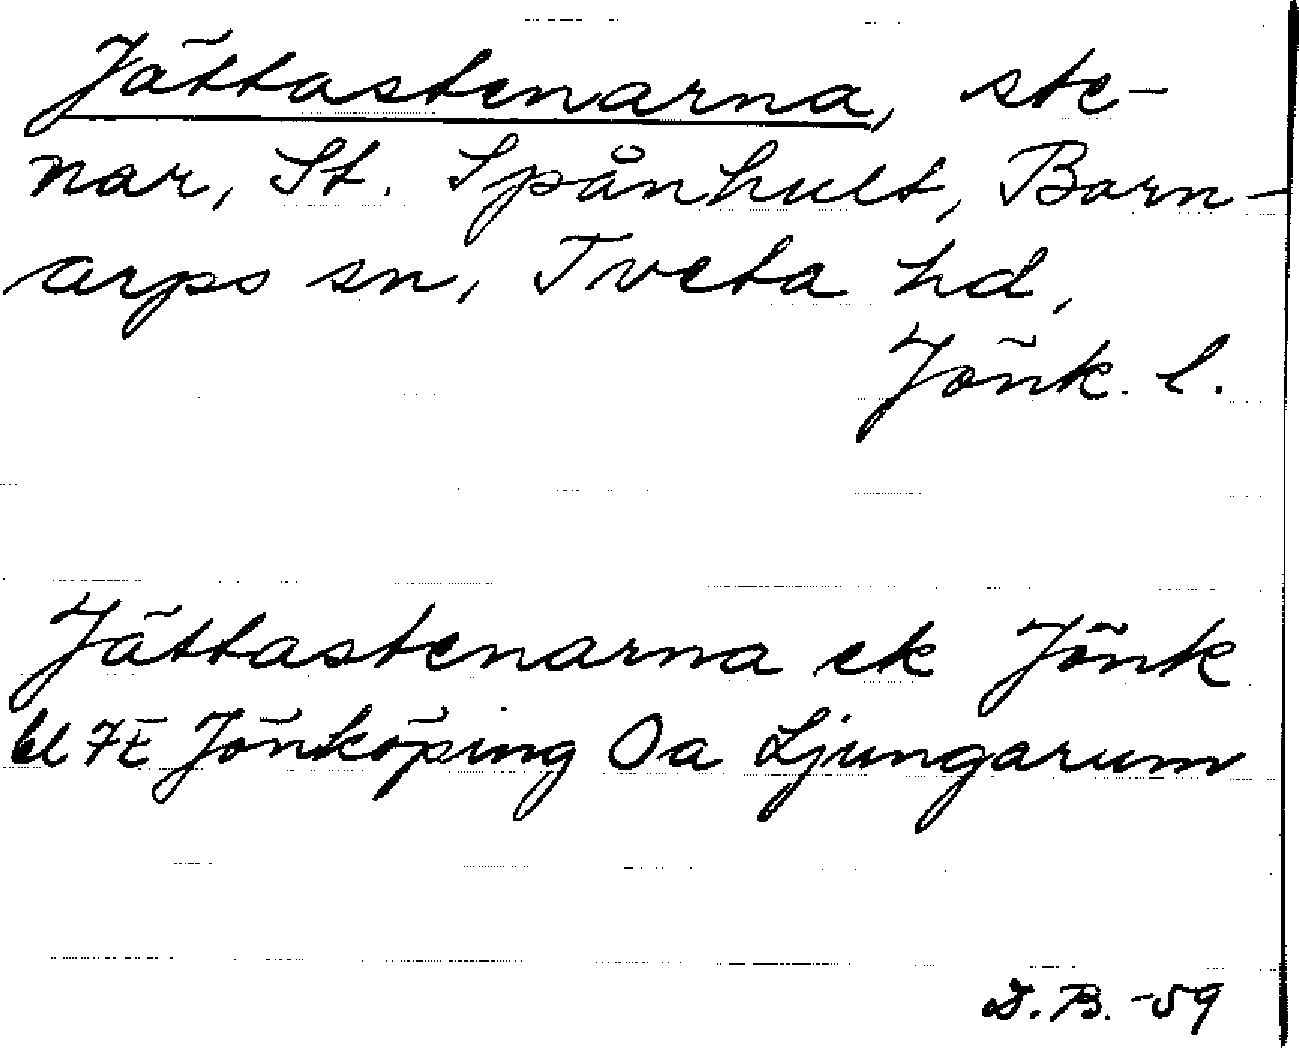 Jättastenarna, ste-
nar, St. Spånhult, Barn-
arps sn, Tveta hd,
Jönk. l.
Jättastenarna ek Jönk
bl 7E Jönköping Oa Ljungarum
B. -59